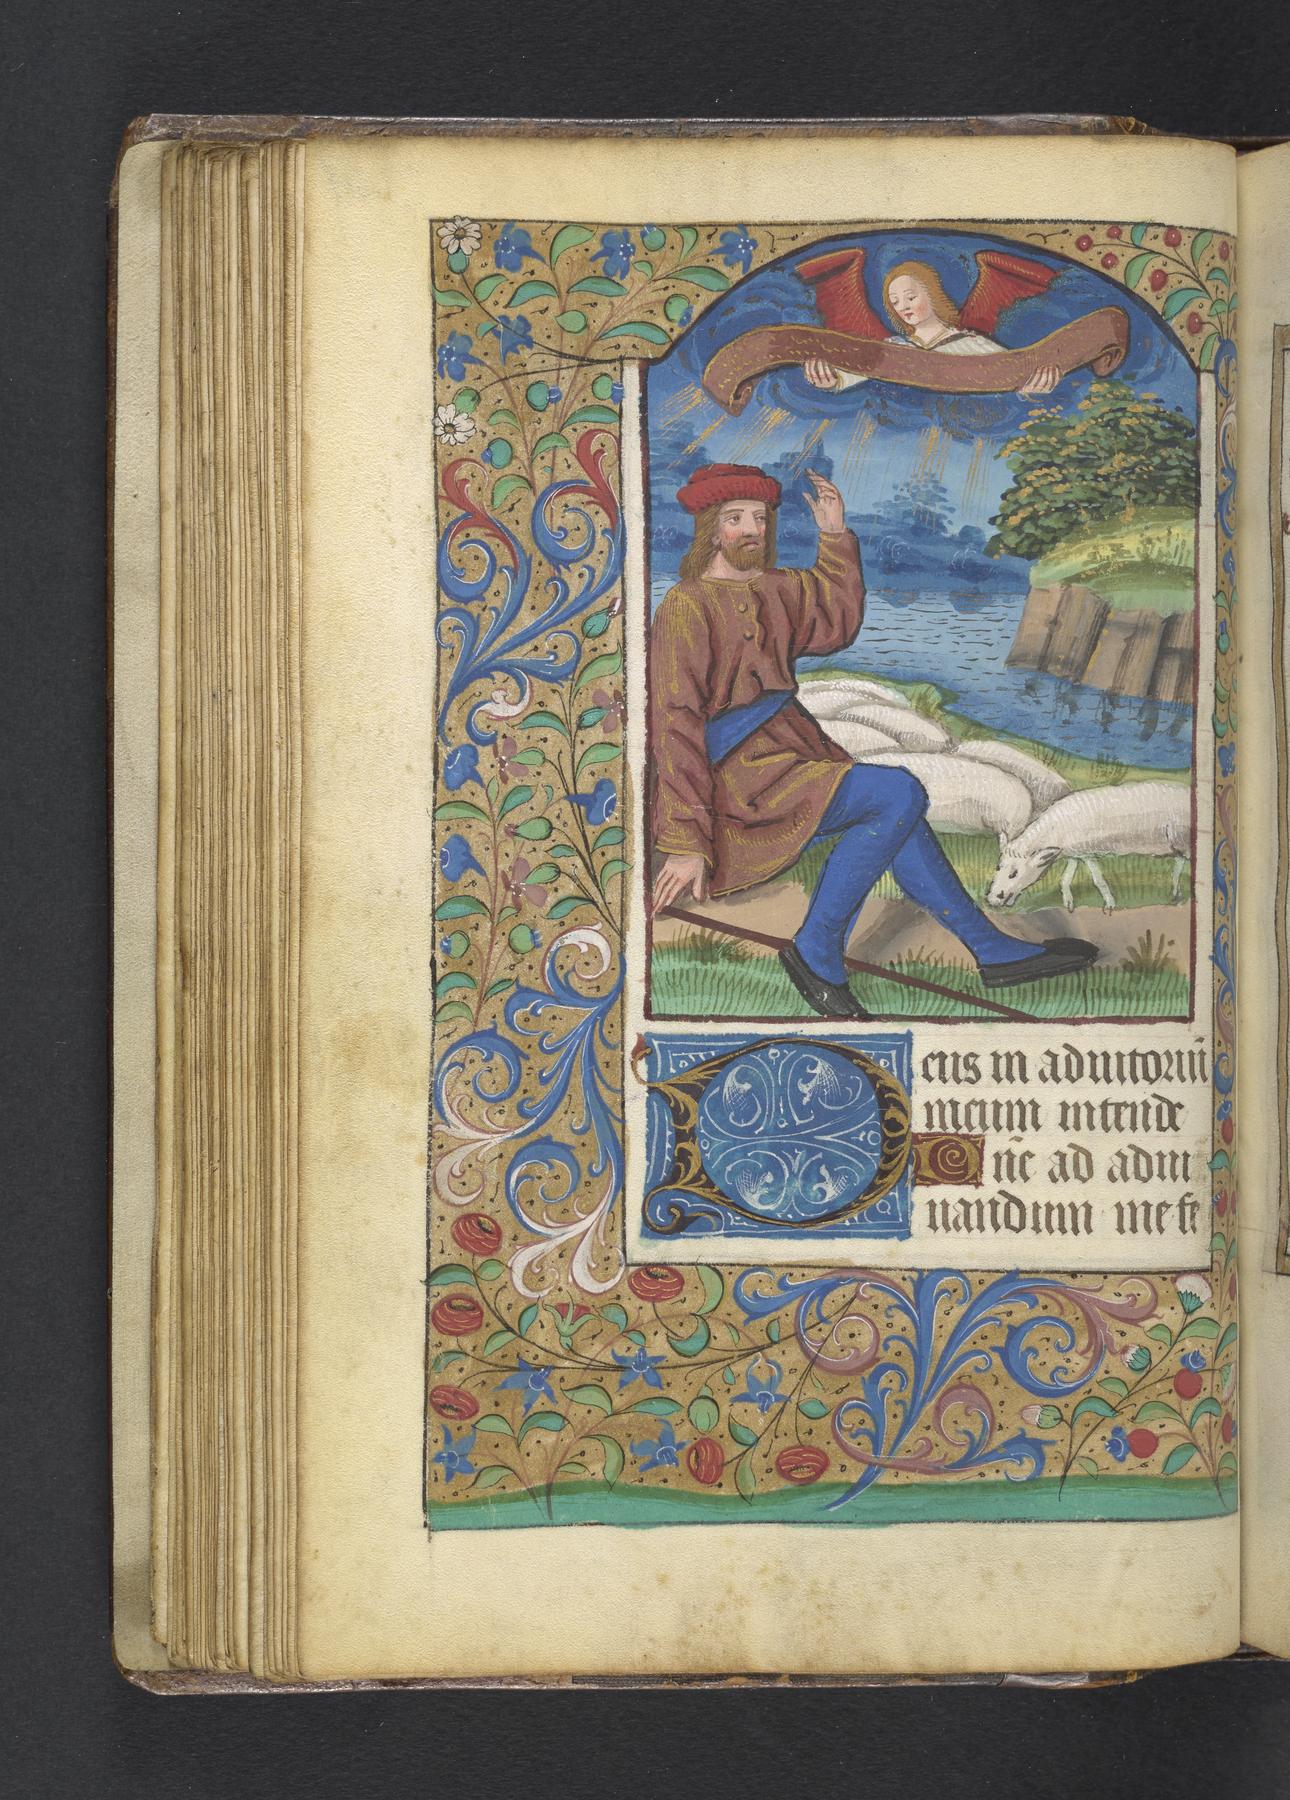 Deus in adiutoriū
meum intende
Dn̄e ad adiu
uandum me fe